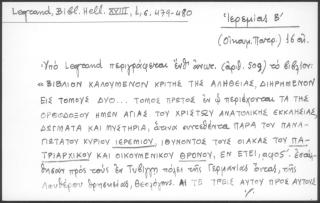 Legrand, Bibl. Hell. XVIII, I, σ. 479-480
Ἱερεμίας Β'
(Οἰκουμ. Πατρ.) 16 αἰ.
Ὑπὸ Legrand περιγράφεται ἔνθ' ἀνωτ. (ἀριθ. 509) τὸ βιβλίον:
«ΒΙΒΛΙΟΝ ΚΑΛΟΥΜΕΝΟΝ ΚΡΙΤΗΣ ΤΗΣ ΑΛΗΘΕΙΑΣ, ΔΙΗΡΗΜΕΝΟΝ
ΕΙΣ ΤΟΜΟΥΣ ΔΥΟ... ΤΟΜΟΣ ΠΡΩΤΟΣ ἐν ᾧ περιέχονται ΤΑ ΤΗΣ
ΟΡΘΟΔΟΞΟΥ ΗΜΩΝ ΑΓΙΑΣ ΤΟΥ ΧΡΙΣΤΟΥ ΑΝΑΤΟΛΙΚΗΣ ΕΚΚΛΗΣΙΑΣ
ΔΟΓΜΑΤΑ ΚΑΙ ΜΥΣΤΗΡΙΑ, ἅτινα συνετέθεντα ΠΑΡΑ ΤΟΥ ΠΑΝΑ-
ΓΙΩΤΑΤΟΥ ΚΥΡΙΟΥ ΙΕΡΕΜΙΟΥ, ΙΘΥΝΟΝΤΟΣ ΤΟΥΣ ΟΙΑΚΑΣ ΤΟΥ ΠΑ-
ΤΡΙΑΡΧΙΚΟΥ ΚΑΙ ΟΙΚΟΥΜΕΝΙΚΟΥ ΘΡΟΝΟΥ, ΕΝ ΕΤΕΙ
πρὸς τοὺς ἐν Τυβίγγῃ πόλει τῆς Γερμανίας ὄντας, τῆς
Λουθήρου θρησκείας, Θεολόγους. ΑΙ ΤΕ ΤΡΕΙΣ ΑΥΤΟΥ ΠΡΟΣ ΑΥΤΟΥΣ